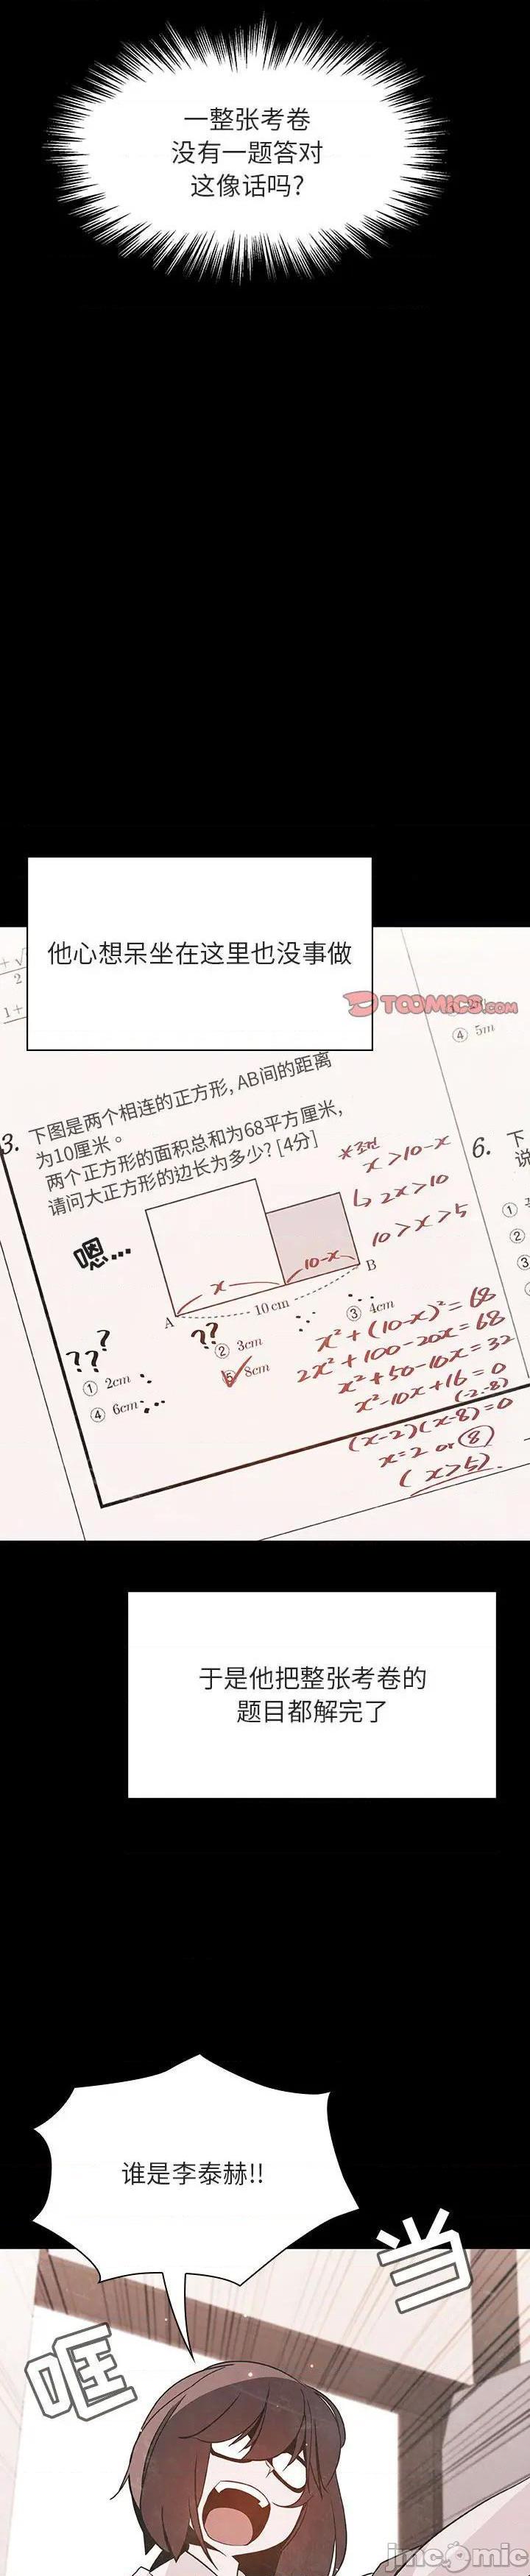 一整张考卷
没有一题答对
这像话吗?
他心想呆坐在这里也没事做
TOOMICS.COM
2
1+
④ 5m
3. 下图是两个相连的正方形, AB间的距离
为10厘米。
两个正方形的面积总和为68平方厘米,
请问大正方形的边长为多少? [4分]
嗯...
6. 下
说
①
②
③
x>10-x
2x>10
10>x>5
x
10-x
A
10cm
B
??
?
??
① 2cm
② 3cm
③ 4cm
④ 6cm
⑤ 8cm
x²+(10-x)²=68
2x²+100-20x=68
x²+50-10x=32
x²-10x+16=0
(-2,-8)
(x-2)(x-8)=0
x=2 or ⑧
(x>5)
于是他把整张考卷的
题目都解完了
谁是李泰赫!!
当
哐
jmcomic